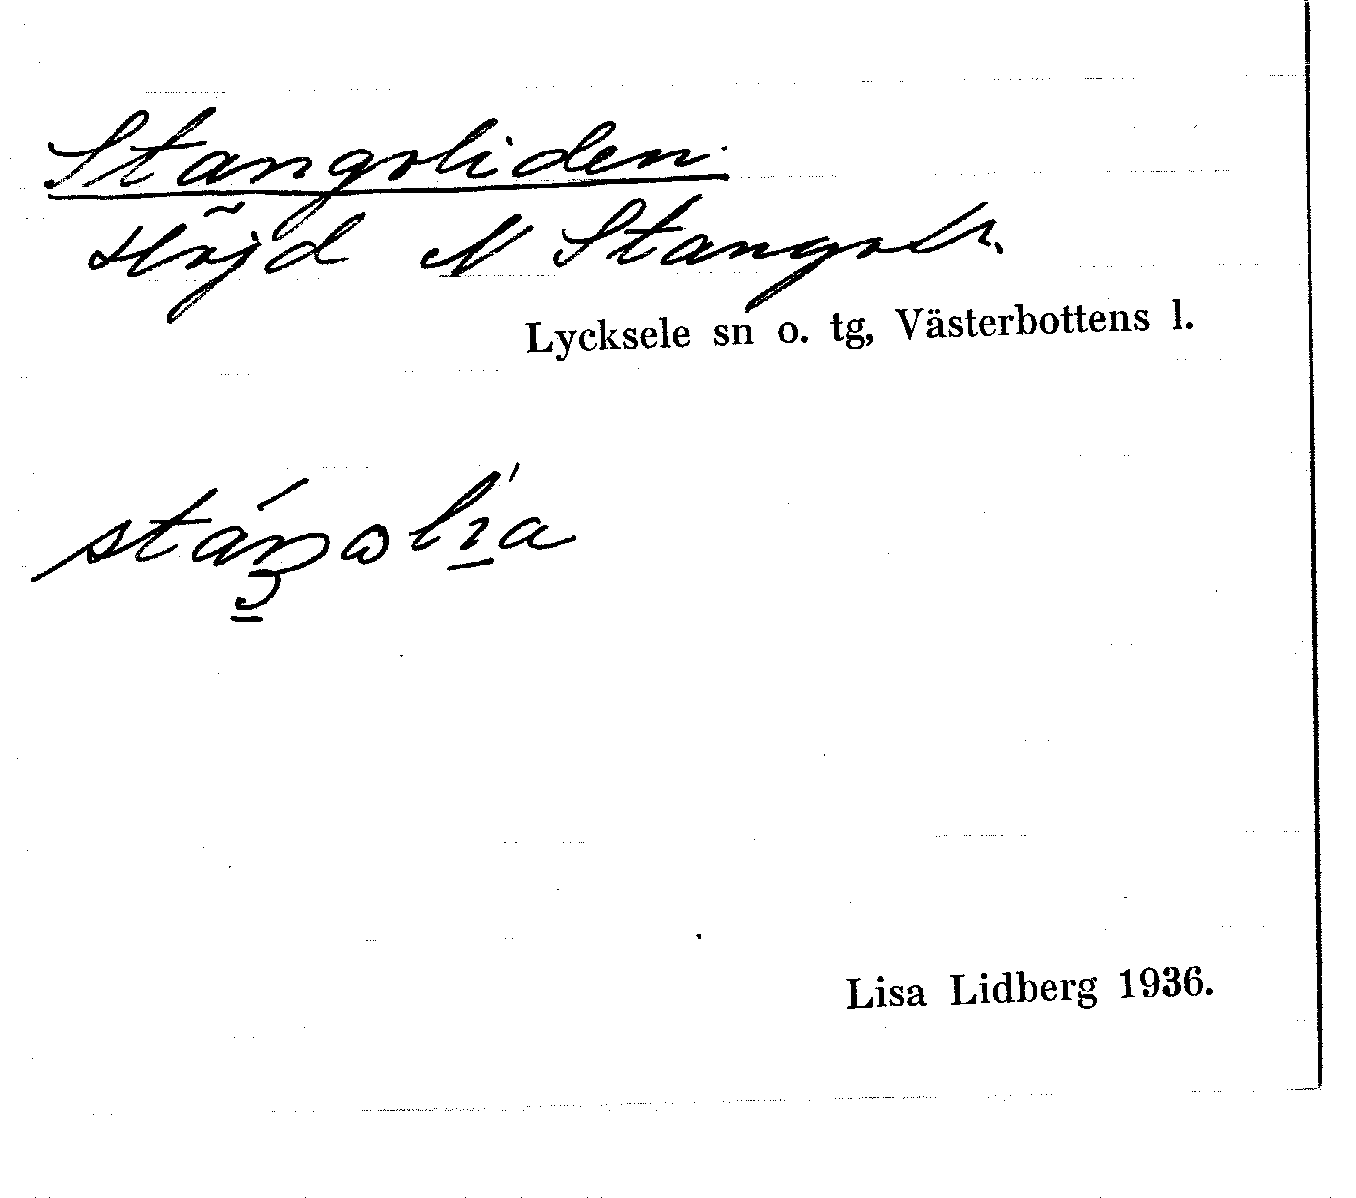 Stangoliden.
Höjd N Stangoli.
Lycksele sn o. tg, Västerbottens l.
Lisa Lidberg 1936.